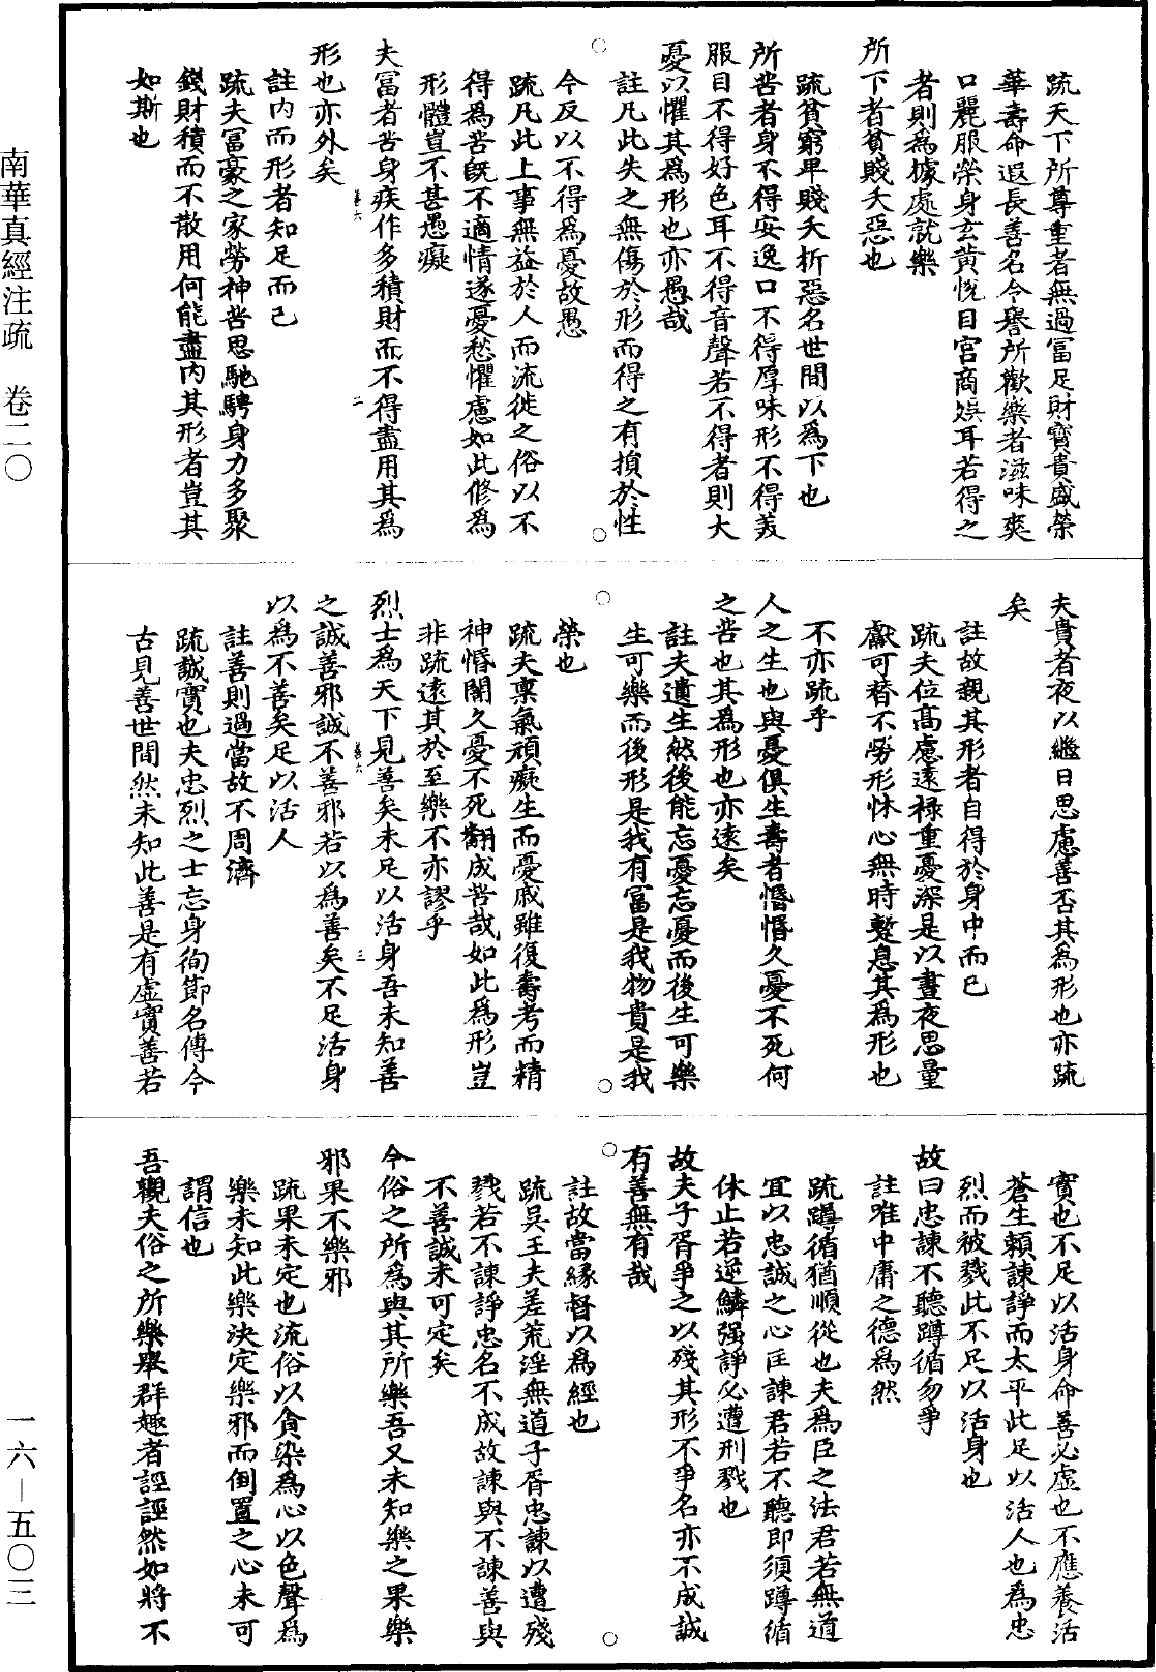 疏天下所尊重者無過冨足財寶貴盛榮
華壽命遐長善名令譽所歡樂者滋味爽
口麗服榮身玄黃悅目宮商娛耳若得之
者則為據處就樂
所下者貧賤夭惡也
疏貧窮卑賤夭折惡名世間以為下也
所苦者身不得安逸口不得厚味形不得美
服目不得好色耳不得音聲若不得者則大
憂以懼其為形也亦愚哉
註凡此失之無傷於形而得之有損於性
今反以不得為憂故愚
疏凡此上事無益於人而流徙之俗以不
得為苦既不適情遂憂愁懼慮如此修為
形體豈不甚愚癡
夫冨者苦身疾作多積財而不得盡用其為
形也亦外矣
註內而形者知足而已
疏夫冨豪之家勞神苦思馳騁身力多聚
錢財積而不散用何能盡內其形者豈其
如斯也
夫貴者夜以繼日思慮善否其為形也亦疏
矣
註故親其形者自得於身中而已
疏夫位高慮遠祿重憂深是以晝夜思量
獻可替不勞形怵心無時蹔息其為形也
不亦疏乎
人之生也與憂俱生壽者惛惛久憂不死何
之苦也其為形也亦遠矣
註夫遺生然後能忘憂忘憂而後生可樂
生可樂而後形是我有富是我物貴是我
榮也
疏夫稟氣頑癡生而憂戚雖復壽考而精
神惛闇久憂不死翻成苦哉如此為形豈
非疏遠其於至樂不亦謬乎
烈士為天下見善矣未足以活身吾未知善
之誠善邪誠不善邪若以為善矣不足活身
以為不善矣足以活人
註善則過當故不周濟
疏誠實也夫忠烈之士忘身徇節名傳今
古見善世間然未知此善是有虛實善若
實也不足以活身命善必虛也不應養活
蒼生賴諫諍而太平此足以活人也為忠
烈而被戮此不足以活身也
故曰忠諫不聽蹲循勿爭
註唯中庸之德為然
疏蹲循猶順從也夫為臣之法君若無道
宜以忠誠之心匡諫君若不聽即須蹲循
休止若逆鱗强諍必遭刑戮也
故夫子胥爭之以殘其形不爭名亦不成誠
有善無有哉
註故當緣督以為經也
疏吳王夫差荒淫無道子胥忠諫以遭殘
戮若不諫諍忠名不成故諫與不諫善與
不善誠未可定矣
今俗之所為與其所樂吾又未知樂之果樂
邪果不樂邪
疏果未定也流俗以貪染為心以色聲為
樂未知此樂決定樂邪而倒置之心未可
謂信也
吾觀夫俗之所樂舉群趣者誙誙然如將不
南華真經注疏　卷二〇
一六—五〇三